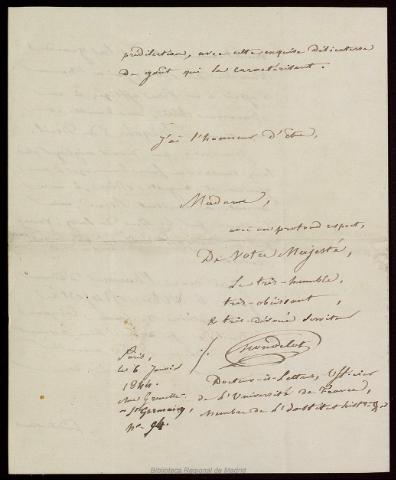 prédilection, avec cette exquise délicatesse
de goût qui la caractérisent.
j'ai l'honneur d'Etre,
Madame,
avec un profond respect,
De Votre Majesté,
Le très-humble,
très-obéissant,
& très dévoué serviteur
Docteur-ès-Lettres, Officier
de l'Université de France,
Membre de l'Institut hist.
Paris,
le 6 Janvier
1844.
Rue Grenelle
St Germain,
nº 94.
Biblioteca Regional de Madrid